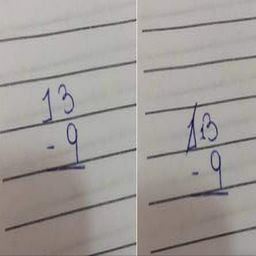 13
- 9
13
- 9